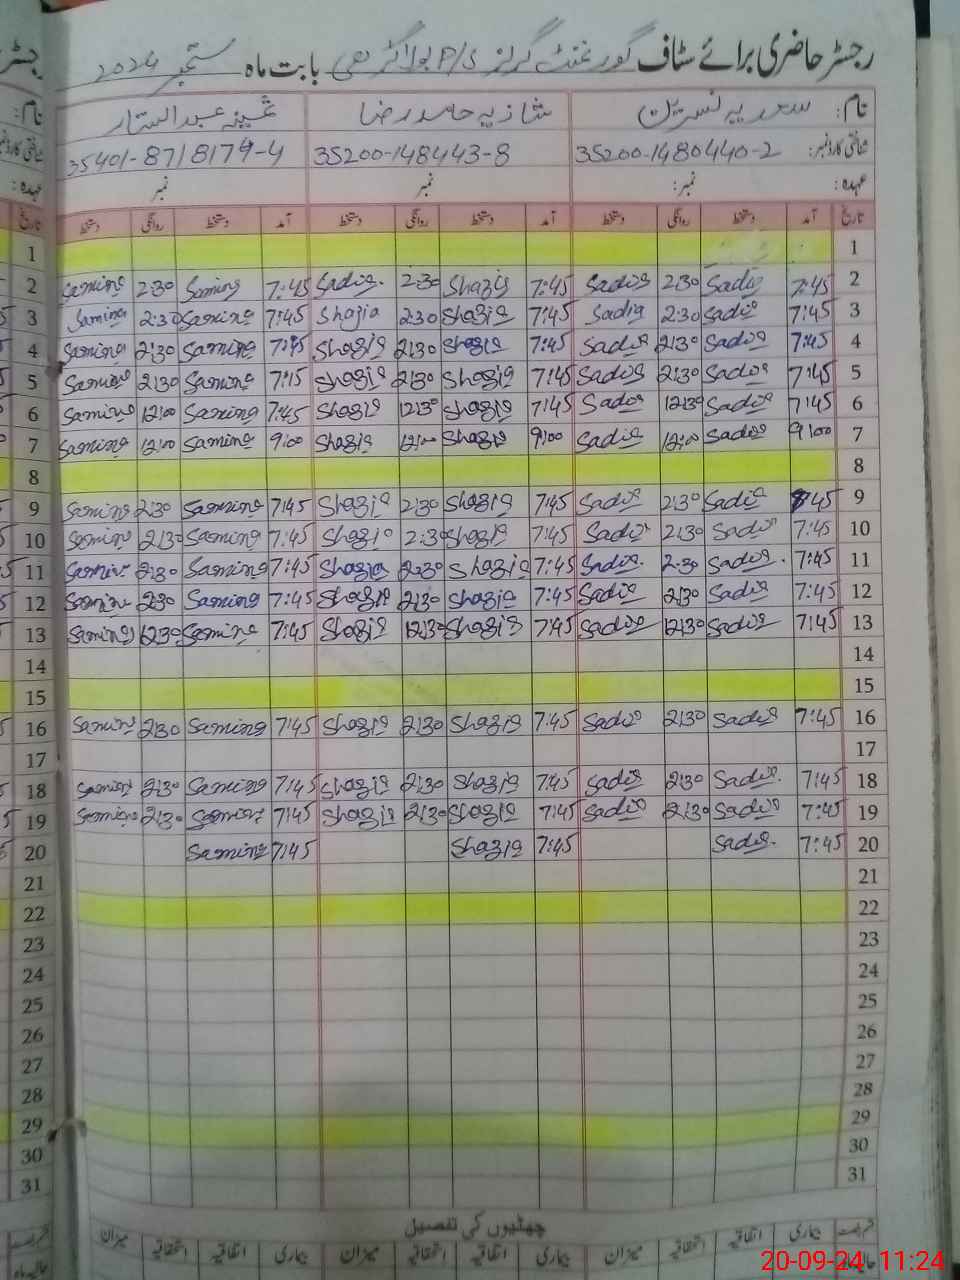 رجسٹر حاضری برائے سٹاف گورنمنٹ گرلز P/S بابت ماہ ستمبر 2024
نام: سعدیہ نسرین شازیہ حامد رضا ثمینہ عبدالستار
شناختی کارڈ نمبر: 35200-1480440-2 35200-148443-8 35401-8718179-4
عہدہ: نمبر: نمبر نمبر
تاریخ آمد دستخط روانگی دستخط آمد دستخط روانگی دستخط آمد دستخط روانگی دستخط تاریخ
1 1
2 Samina 2:30 Samina 7:45 Sadia 2:30 Shazia 7:45 Sadia 2:30 Sadia 7:45 2
3 Samina 2:30 Samina 7:45 Shazia 2:30 Shazia 7:45 Sadia 2:30 Sadia 7:45 3
4 Samina 2:30 Samina 7:45 Shazia 2:30 Shazia 7:45 Sadia 2:30 Sadia 7:45 4
5 Samina 2:30 Samina 7:15 Shazia 2:30 Shazia 7:45 Sadia 2:30 Sadia 7:45 5
6 Samina 12:00 Samina 7:45 Shazia 12:30 Shazia 7:45 Sadia 12:30 Sadia 7:45 6
7 Samina 12:00 Samina 9:00 Shazia 12:00 Shazia 9:00 Sadia 12:00 Sadia 9:00 7
8 8
9 Samina 2:30 Samina 7:45 Shazia 2:30 Shazia 7:45 Sadia 2:30 Sadia 7:45 9
10 Samina 2:30 Samina 7:45 Shazia 2:30 Shazia 7:45 Sadia 2:30 Sadia 7:45 10
11 Samina 2:30 Samina 7:45 Shazia 2:30 Shazia 7:45 Sadia 2:30 Sadia 7:45 11
12 Samina 2:30 Samina 7:45 Shazia 2:30 Shazia 7:45 Sadia 2:30 Sadia 7:45 12
13 Samina 12:30 Samina 7:45 Shazia 12:30 Shazia 7:45 Sadia 12:30 Sadia 7:45 13
14 14
15 15
16 Samina 2:30 Samina 7:45 Shazia 2:30 Shazia 7:45 Sadia 2:30 Sadia 7:45 16
17 17
18 Samina 2:30 Samina 7:45 Shazia 2:30 Shazia 7:45 Sadia 2:30 Sadia 7:45 18
19 Samina 2:30 Samina 7:45 Shazia 2:30 Shazia 7:45 Sadia 2:30 Sadia 7:45 19
20 Samina 7:45 Shazia 7:45 Sadia 7:45 20
21 21
22 22
23 23
24 24
25 25
26 26
27 27
28 28
29 29
30 30
31 31
چھٹیوں کی تفصیل
بیماری اتفاقیہ استحقاقیہ میزان بیماری اتفاقیہ استحقاقیہ میزان بیماری اتفاقیہ استحقاقیہ میزان
20-09-24 11:24